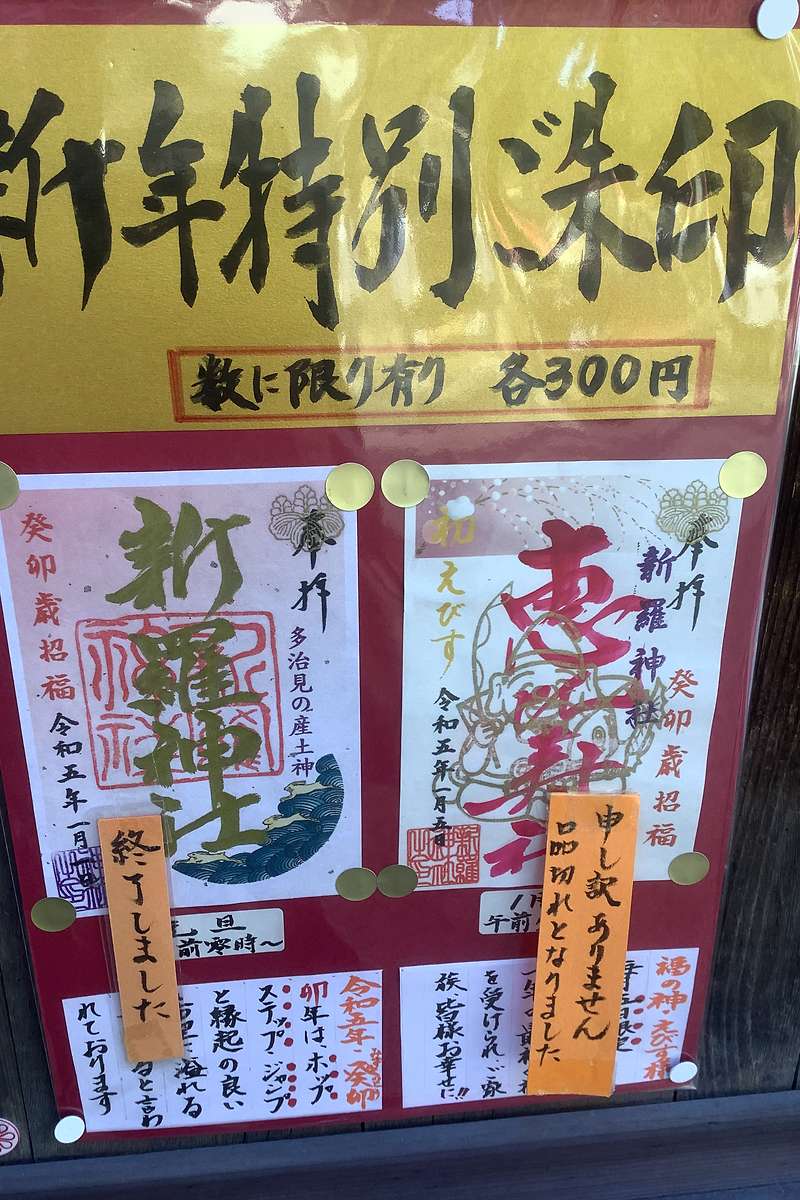 新年特別ご朱印
数に限り有り 各300円
奉拝
多治見の産土神
新羅神社
癸卯歳招福
令和五年一月
終了しました
元旦
前零時～
令和五年・癸卯
卯年は、ホップ
ステップ・ジャンプ
と縁起の良い
溢れる
ると言わ
れております
奉拝
新羅神社
癸卯歳招福
恵比寿社
初えびす
令和五年一月五日
新羅神社
申し訳ありません
品切れとなりました
午前
福の神・えびす様
を受けられ、ご家
族皆様お幸せに!!